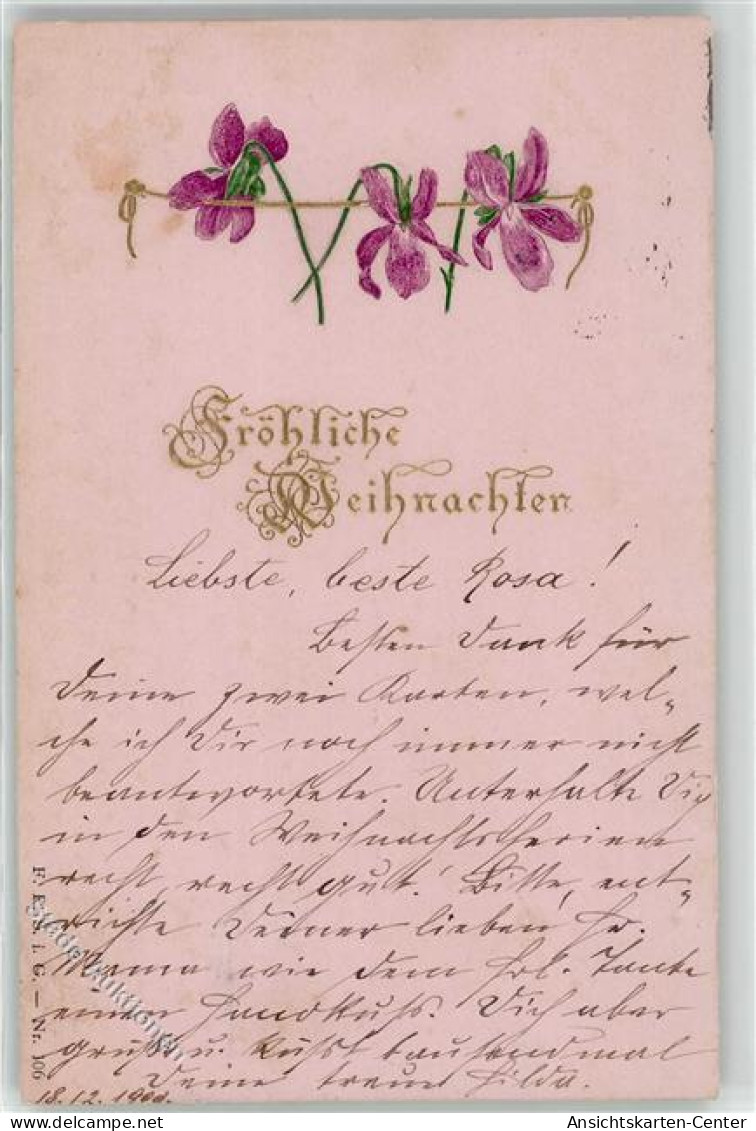 Fröhliche
Weihnachten
Liebste, beste Rosa!
Besten Dank für
Deine zwei Karten, wel-
che ich Dir noch immer nicht
beantwortete. Unterhalte Dich
in den Weihnachtsferien
recht, recht gut! Bitte, ent-
richte Deiner lieben Fr.
Mama wie dem Frl. Tante
einen Handkuss. Dich aber
grüßt u. küsst tausendmal
Deine treue Hilda.
18.12.1900.
F. E. S. i. G. — Nr. 106
Ansichtskarten-Center